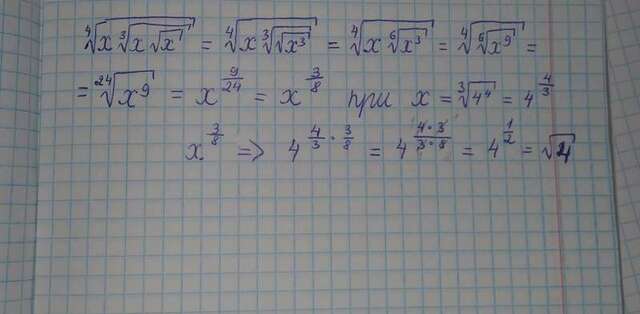 ⁴√(x ³√(x √x)) = ⁴√(x ³√(√x³)) = ⁴√(x ⁶√x³) = ⁴√(⁶√x⁹) =
= ²⁴√x⁹ = x^(9/24) = x^(3/8) при x = ³√4⁴ = 4^(4/3)
x^(3/8) => 4^(4/3 · 3/8) = 4^((4·3)/(3·8)) = 4^(1/2) = √4